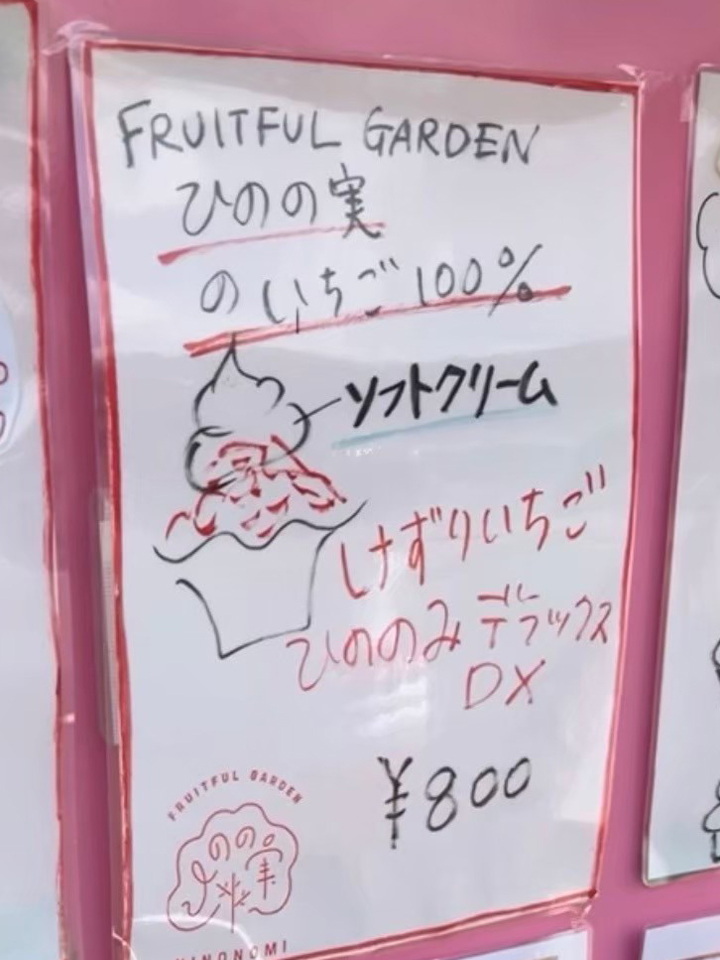 FRUITFUL GARDEN
ひのの実
のいちご100%
ソフトクリーム
けずりいちご
ひののみデラックス
DX
¥800
FRUITFUL GARDEN
ひのの実
HINONOMI